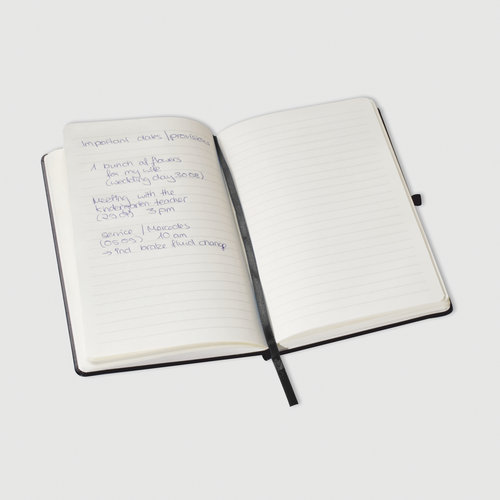 Important dates/provisions
1 bunch of flowers
for my wife
(wedding day 30.08.)
Meeting with the
kindergarten teacher
(29.08) 3 pm
service / Mercedes
(05.09) 10 am
→ incl. brake fluid change